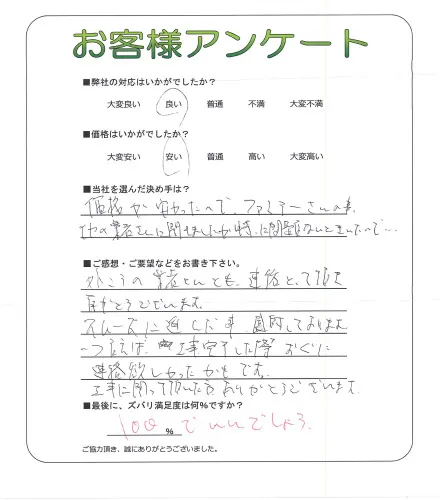 お客様アンケート
■弊社の対応はいかがでしたか？
大変良い 良い 普通 不満 大変不満
■価格はいかがでしたか？
大変安い 安い 普通 高い 大変高い
■当社を選んだ決め手は？
価格が安かったので、ファミテーさんの事、
他の業者さんに聞きましたが特に問題ないときいたので…
■ご感想・ご要望などをお書き下さい。
外こうの業者さんとも連絡とって頂き
ありがとうございます。
スムーズに進んだ事、感謝しております
一つ言えば、工事完了した際すぐに
連絡欲しかったかもです。
工事に関って頂いた方ありがとうございます。
■最後に、ズバリ満足度は何％ですか？
100 % でいいでしょう。
ご協力頂き、誠にありがとうございました。